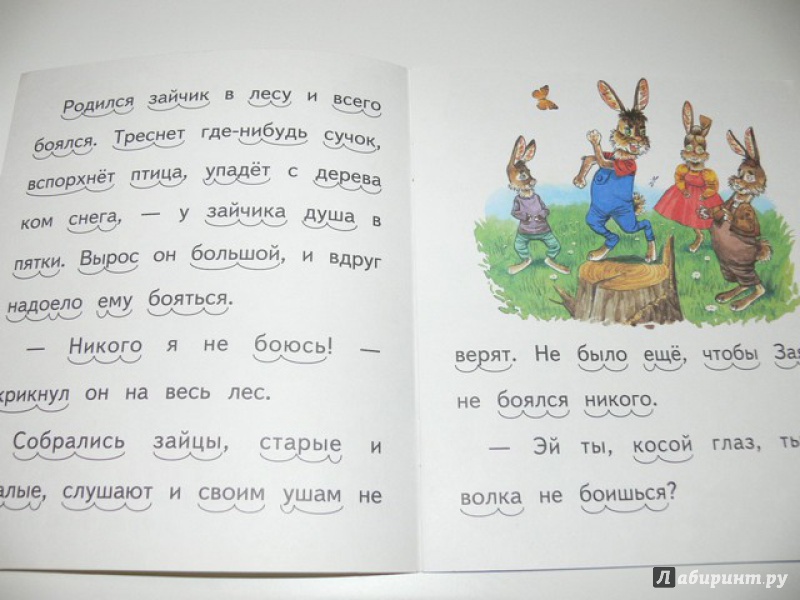 Родился зайчик в лесу и всего
боялся. Треснет где-нибудь сучок,
вспорхнёт птица, упадёт с дерева
ком снега, — у зайчика душа в
пятки. Вырос он большой, и вдруг
надоело ему бояться.
— Никого я не боюсь! —
крикнул он на весь лес.
Собрались зайцы, старые и
алые, слушают и своим ушам не
верят. Не было ещё, чтобы Зая
не боялся никого.
— Эй ты, косой глаз, ты
волка не боишься?
Лабиринт.ру